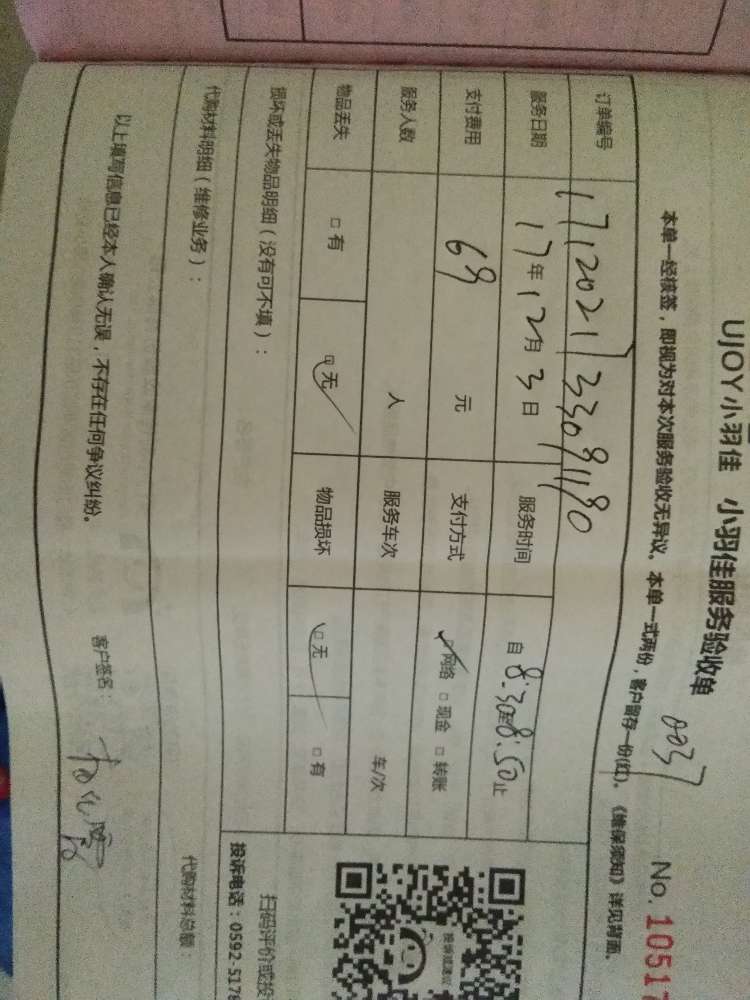 UJOY小羽佳 小羽佳服务验收单
0037
No. 1051
本单一经核签，即视为对本次服务验收无异议。本单一式两份，客户留存一份(红)。《维保须知》详见背面。
订单编号
服务日期 17年12月3日 服务时间 自8:30至8:50止
支付费用 69 元 支付方式 □网络 □现金 □转账
服务人数 人 服务车次 车/次
物品丢失 □有 □无 物品损坏 □无 □有
损坏或丢失物品明细（没有可不填）：
代购材料明细（维修业务）： 代购材料总额：
投诉或建议
扫码评价或投
投诉电话：0592-5178
以上填写信息已经本人确认无误，不存在任何争议纠纷。 客户签名：